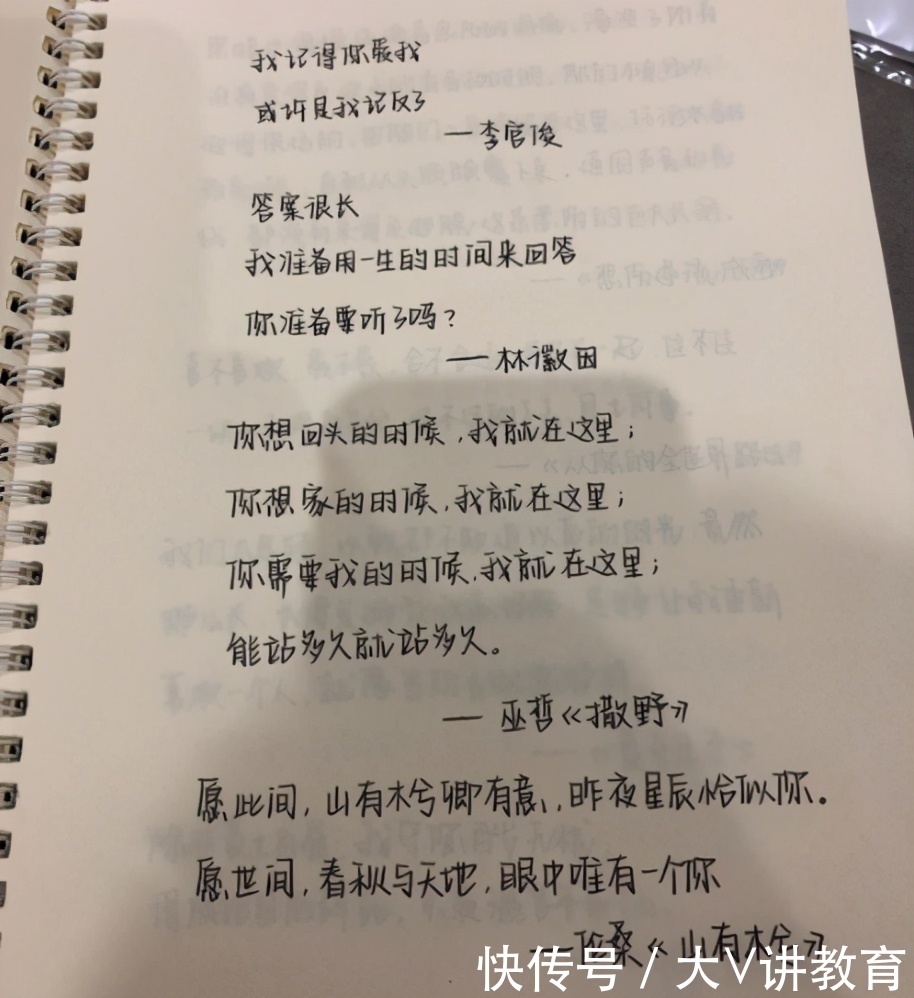 我记得你爱我
或许是我记反了
—李宫俊
答案很长
我准备用一生的时间来回答
你准备要听了吗？
—林徽因
你想回头的时候，我就在这里；
你想家的时候，我就在这里；
你需要我的时候，我就在这里；
能站多久就站多久。
—巫哲《撒野》
愿此间，山有木兮卿有意，昨夜星辰恰似你。
愿世间，春秋与天地，眼中唯有一个你
—伦桑《山有木兮》
快传号 / 大V讲教育